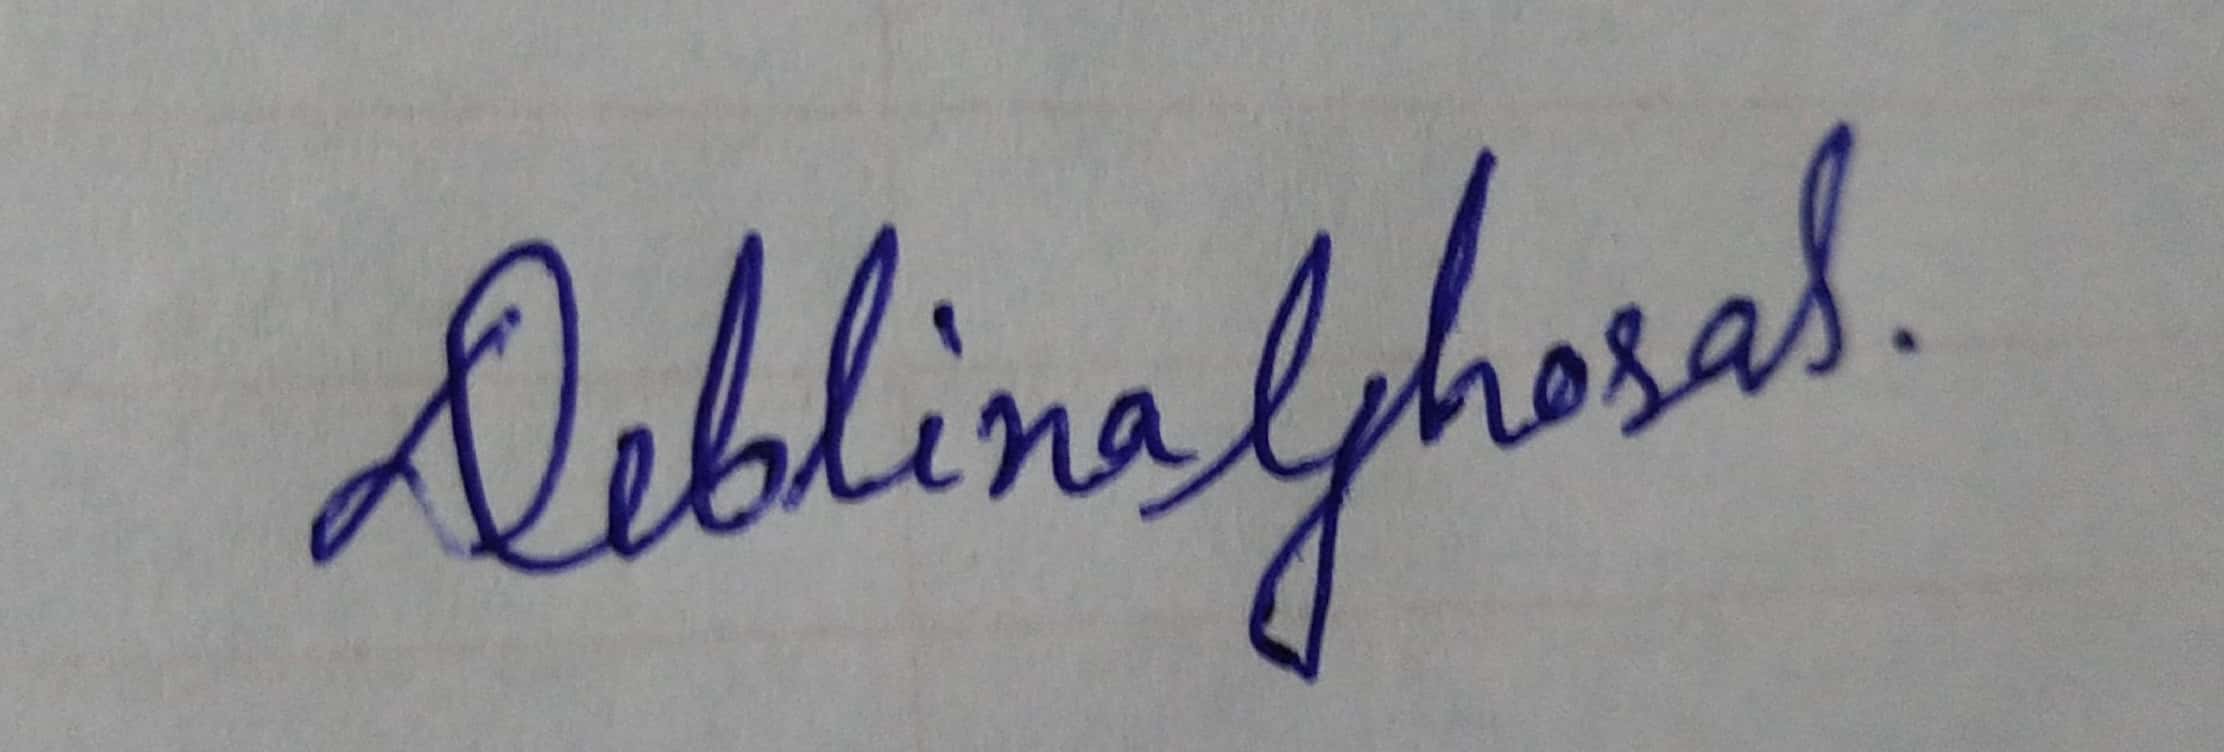 Deblina Ghosal.